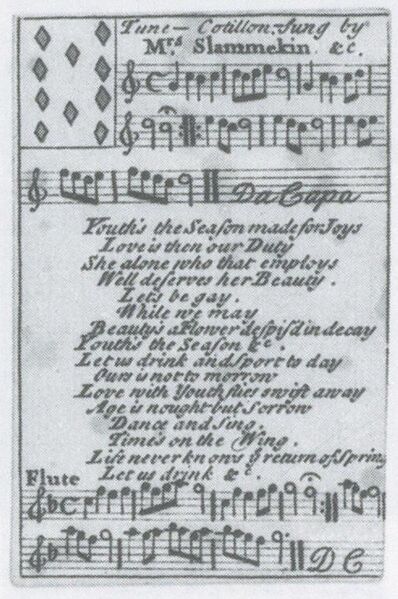 Tune – Cotillon – Sung by
Mrs Slammekin &c.
Da Capo
Youth's the Season made for Joys
Love is then our Duty
She alone who that employs
Well deserves her Beauty.
Let's be gay.
While we may
Beauty's a Flower despis'd in decay
Youth's the Season &c.
Let us drink and sport to day
Ours is not to morrow
Love with Youth flies swift away
Age is nought but Sorrow
Dance and Sing,
Time's on the Wing.
Life never knows ye return of Spring
Let us drink &c.
Flute
D C